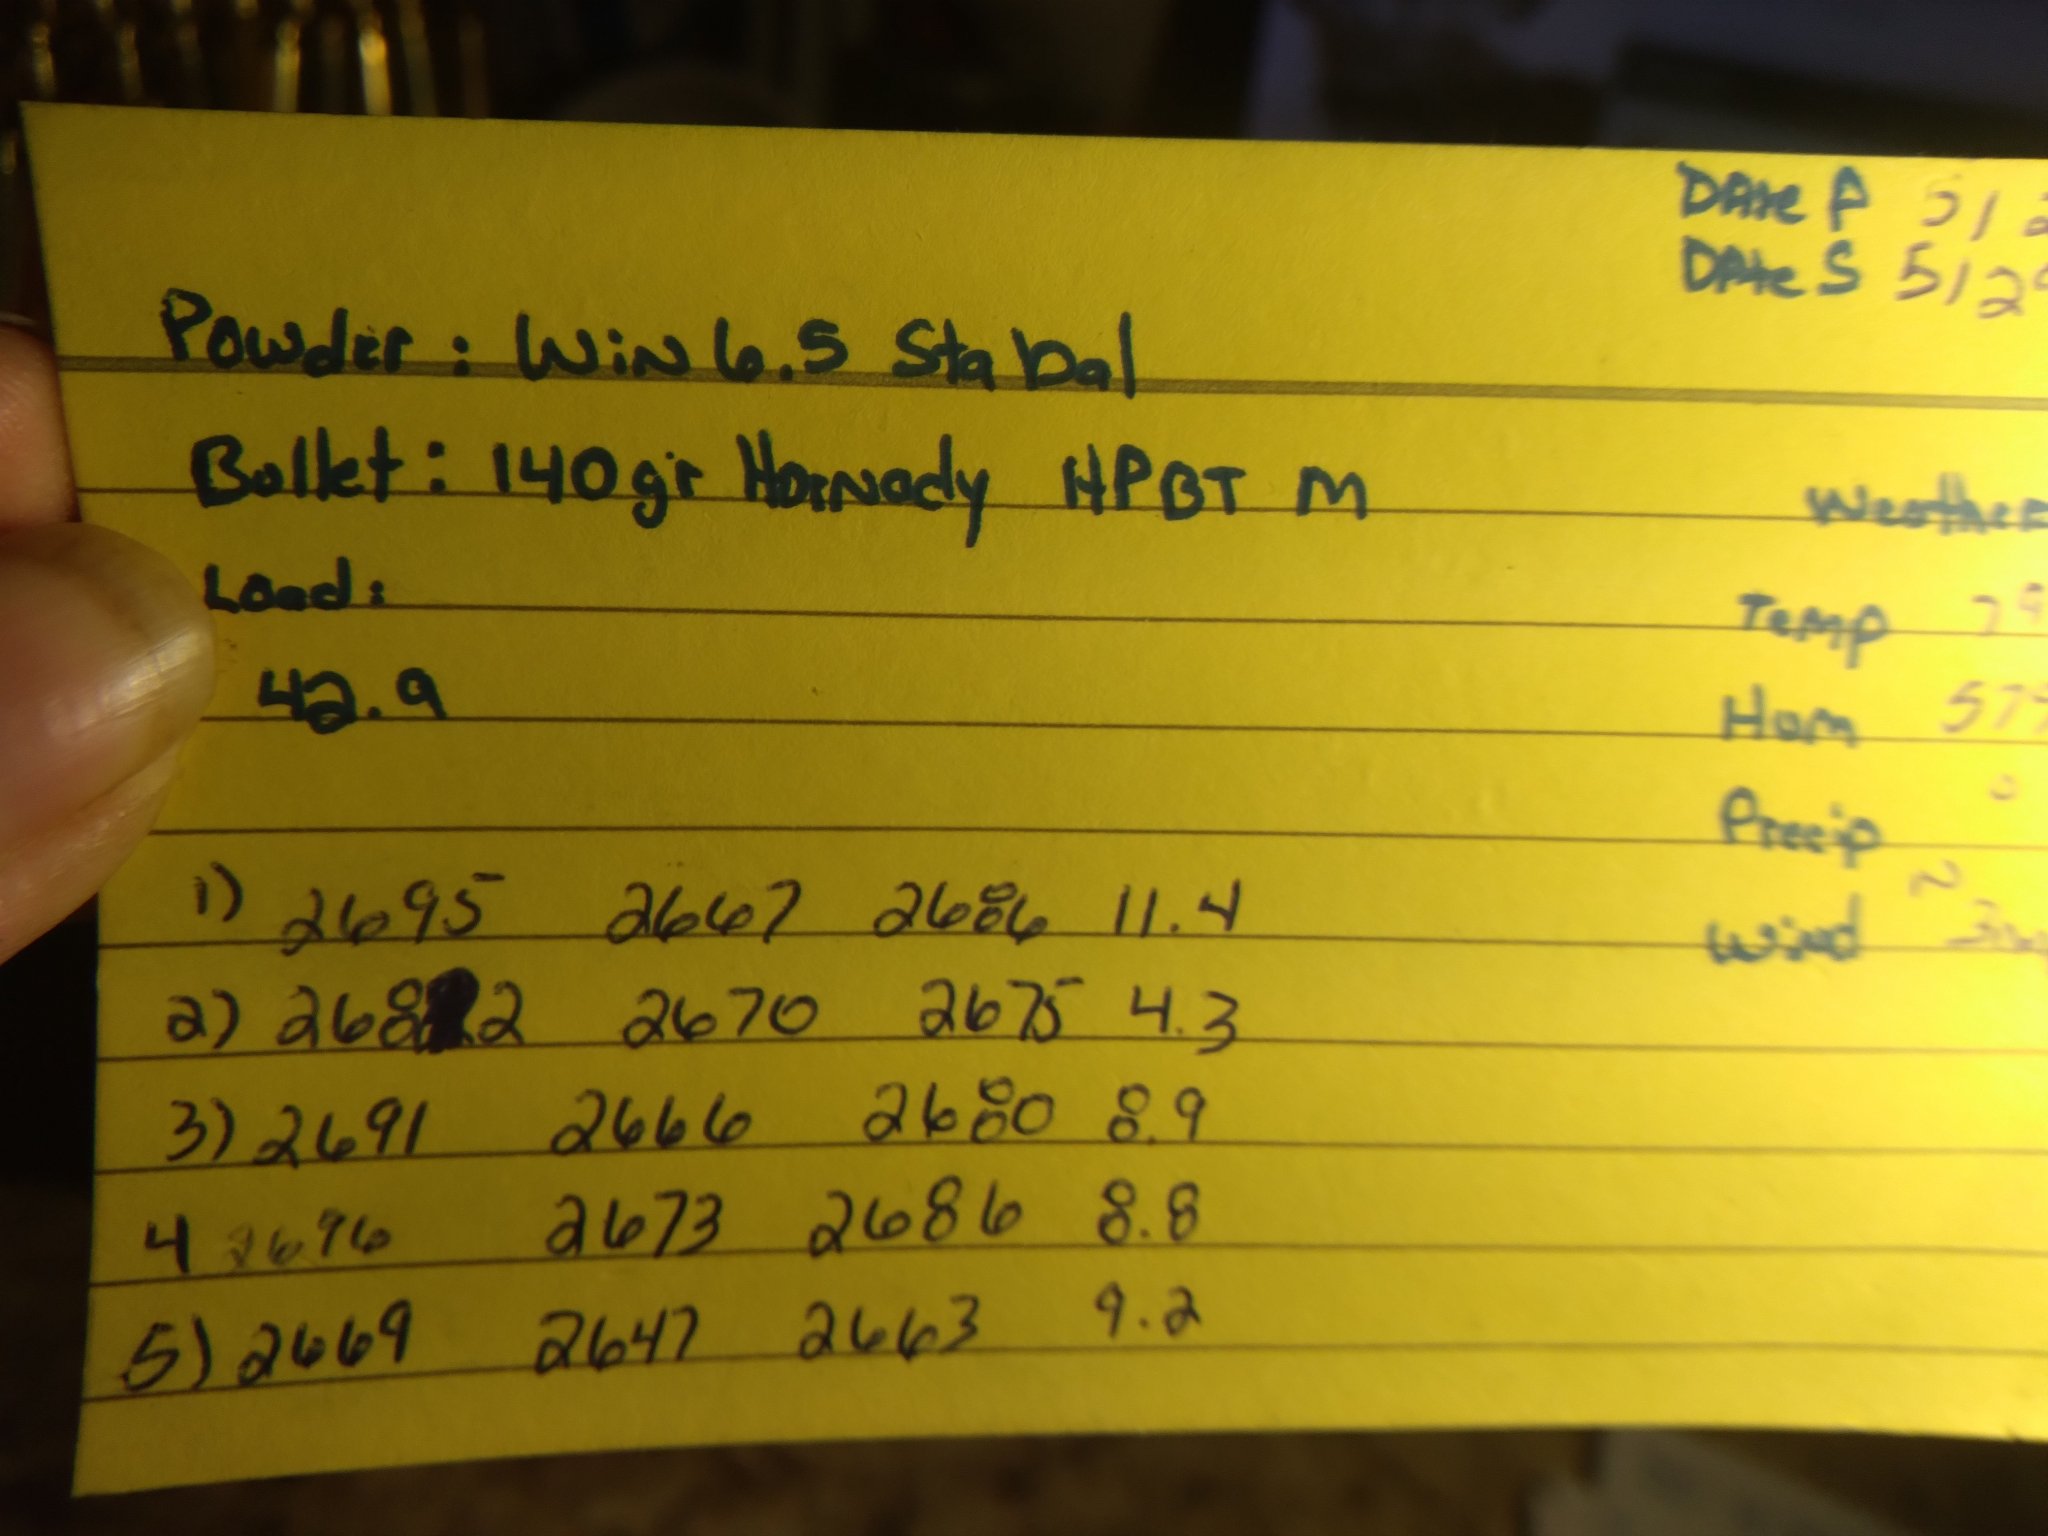 Date P 5/2
Date S 5/2
Powder: Win 6.5 Stabal
Bullet: 140gr Hornady HPBT M
Weather
Load:
Temp 79
42.9
Hum 57%
Precip 0
Wind ~
1) 2695 2667 2686 11.4
2) 2682 2670 2675 4.3
3) 2691 2666 2680 8.9
4 2696 2673 2686 8.8
5) 2669 2647 2663 9.2